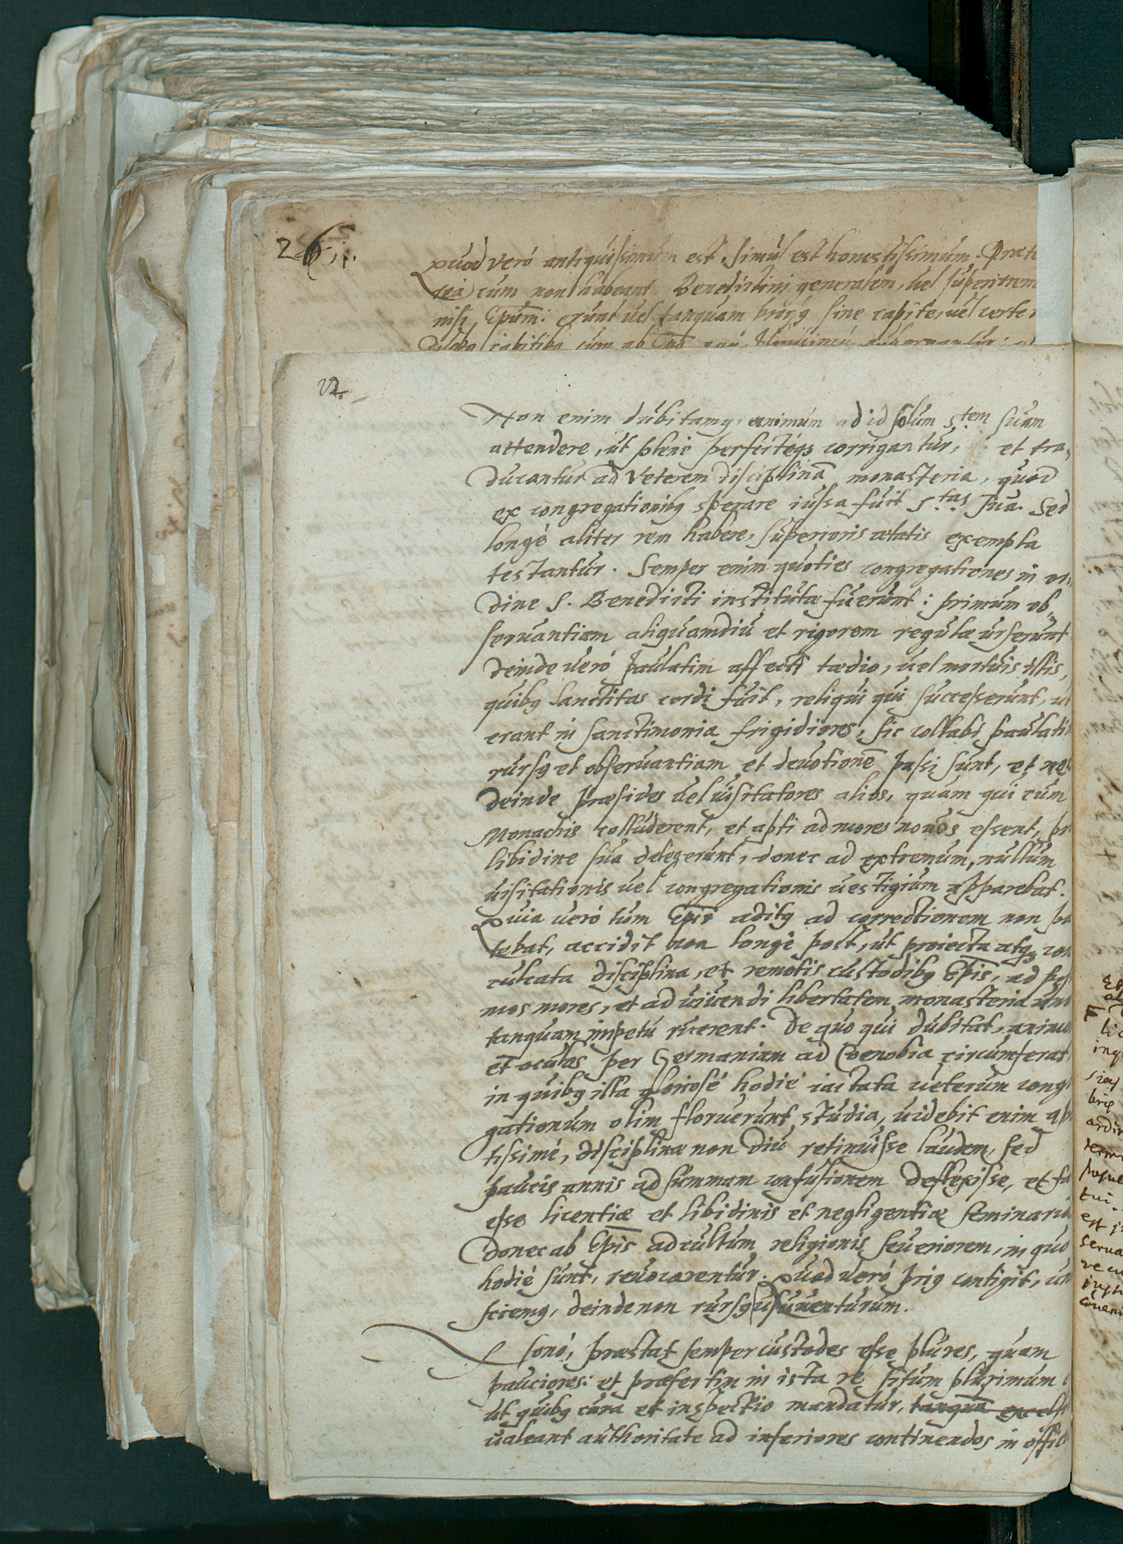 26
Quod veró antiquissimum est simul est honestissimum. Præte
rea cùm non habeant Benedictini generalem, vel superiorem
nisi Epūm: erunt vel tanquam sine capite, vel certe
capitibq cùm ab
Non enim dubitamq, animum ad id solum S.tem suam
attendere, ut plené perfectéqȝ corrigantur, et tra,
ducantur ad veterem disciplinā monasteria, quod
ex congregationibq sperare iussa fuit S.tas sua. Sed
longé aliter rem habere, superioris ætatis exempla
testantur. Semper enim quoties congregationes in or,
dine S. Benedicti institutæ fuerunt: primùm ob,
servantiam aliquamdiu et rigorem regulæ urserunt
deinde veró paulatim affecti tædio, vel mortuis illis,
quibq sanctitas cordi fuit, reliqui qui successerunt, ut
erant in sanctimonia frigidiores, sic collabi paulati
rursq et observantiam et devotionē passi sunt, et nec
deinde Præsides vel visitatores alios, quam qui cum
Monachis colluderent, et apti ad mores novos essent, pro
libidine sua delegerunt, donec ad extremum, nullum
visitationis vel congregationis vestigium apparebat.
Quia veró tum Epīs aditq ad correctionem non pa
tebat, accidit non longè post, ut proiecta atqȝ con
culcata disciplina, et remotis custodibq Epīs, ad pes
mos mores, et ad vivendi libertatem monasteria
tanquam impetu ruerent. De quo qui dubitat, animū
et oculos per Germaniam ad Cœnobia circumferat
in quibq illa gloriosé hodié iactata veterum cong
gationum olim floruerunt studia, videbit enim ap
tissimé, disciplinæ non diu retinuisse laudem, sed
paucis annis ad summam confusionem deflexisse, et fa
esse licentiæ et libidinis et negligentiæ seminaria
donec ab Epīs ad cultum religionis severiorem, in quo
hodié sunt, revocarentur. Quod veró priq contigit, con
scimq, deinde non rursq usuuenturum.
præstat semper custodes esse plures, quam
pauciores: et præsertim in ista re situm plurimum
ut quibq cura et inspectio mandatur, tanquā
valeant authoritate ad inferiores continendos in offic